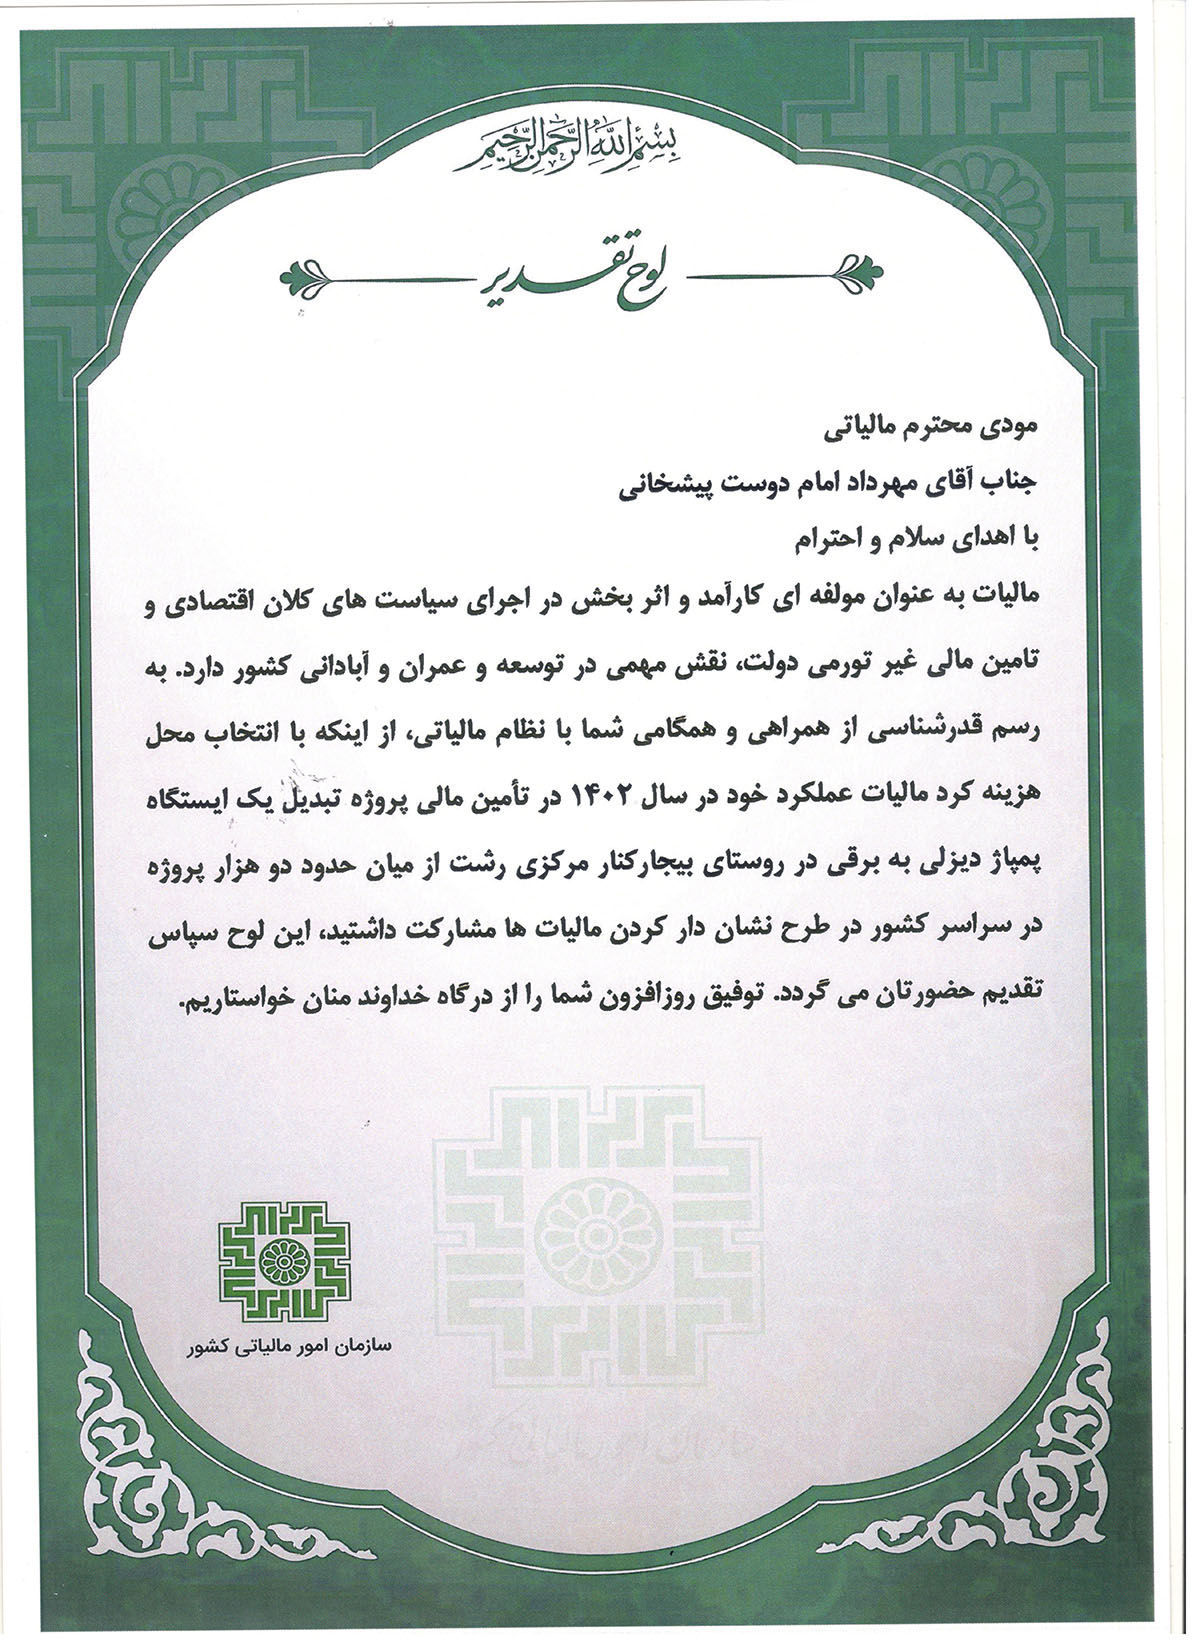 بسم الله الرحمن الرحیم
لوح تقدیر
مودی محترم مالیاتی
جناب آقای مهرداد امام دوست پیشخانی
با اهدای سلام و احترام
مالیات به عنوان مولفه ای کارآمد و اثر بخش در اجرای سیاست های کلان اقتصادی و
تامین مالی غیر تورمی دولت، نقش مهمی در توسعه و عمران و آبادانی کشور دارد. به
رسم قدرشناسی از همراهی و همگامی شما با نظام مالیاتی، از اینکه با انتخاب محل
هزینه کرد مالیات عملکرد خود در سال ۱۴۰۲ در تأمین مالی پروژه تبدیل یک ایستگاه
پمپاژ دیزلی به برقی در روستای بیجارکنار مرکزی رشت از میان حدود دو هزار پروژه
در سراسر کشور در طرح نشان دار کردن مالیات ها مشارکت داشتید، این لوح سپاس
تقدیم حضورتان می گردد. توفیق روزافزون شما را از درگاه خداوند منان خواستاریم.
سازمان امور مالیاتی کشور